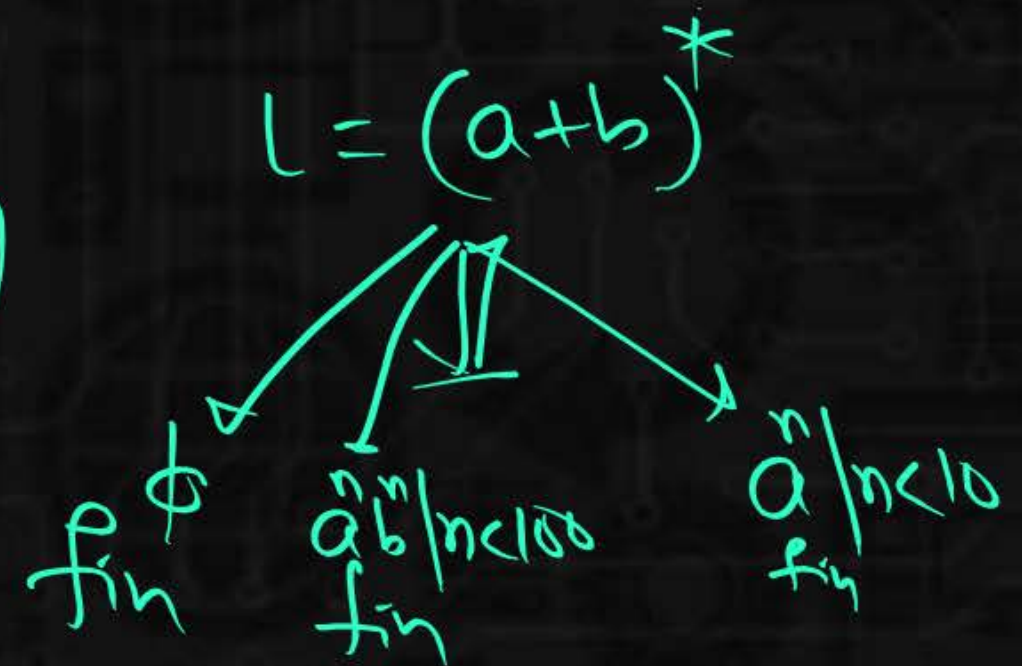 L = (a+b)*
ϕ
fin
aⁿbⁿ|n<100
fin
aⁿ|n<10
fin